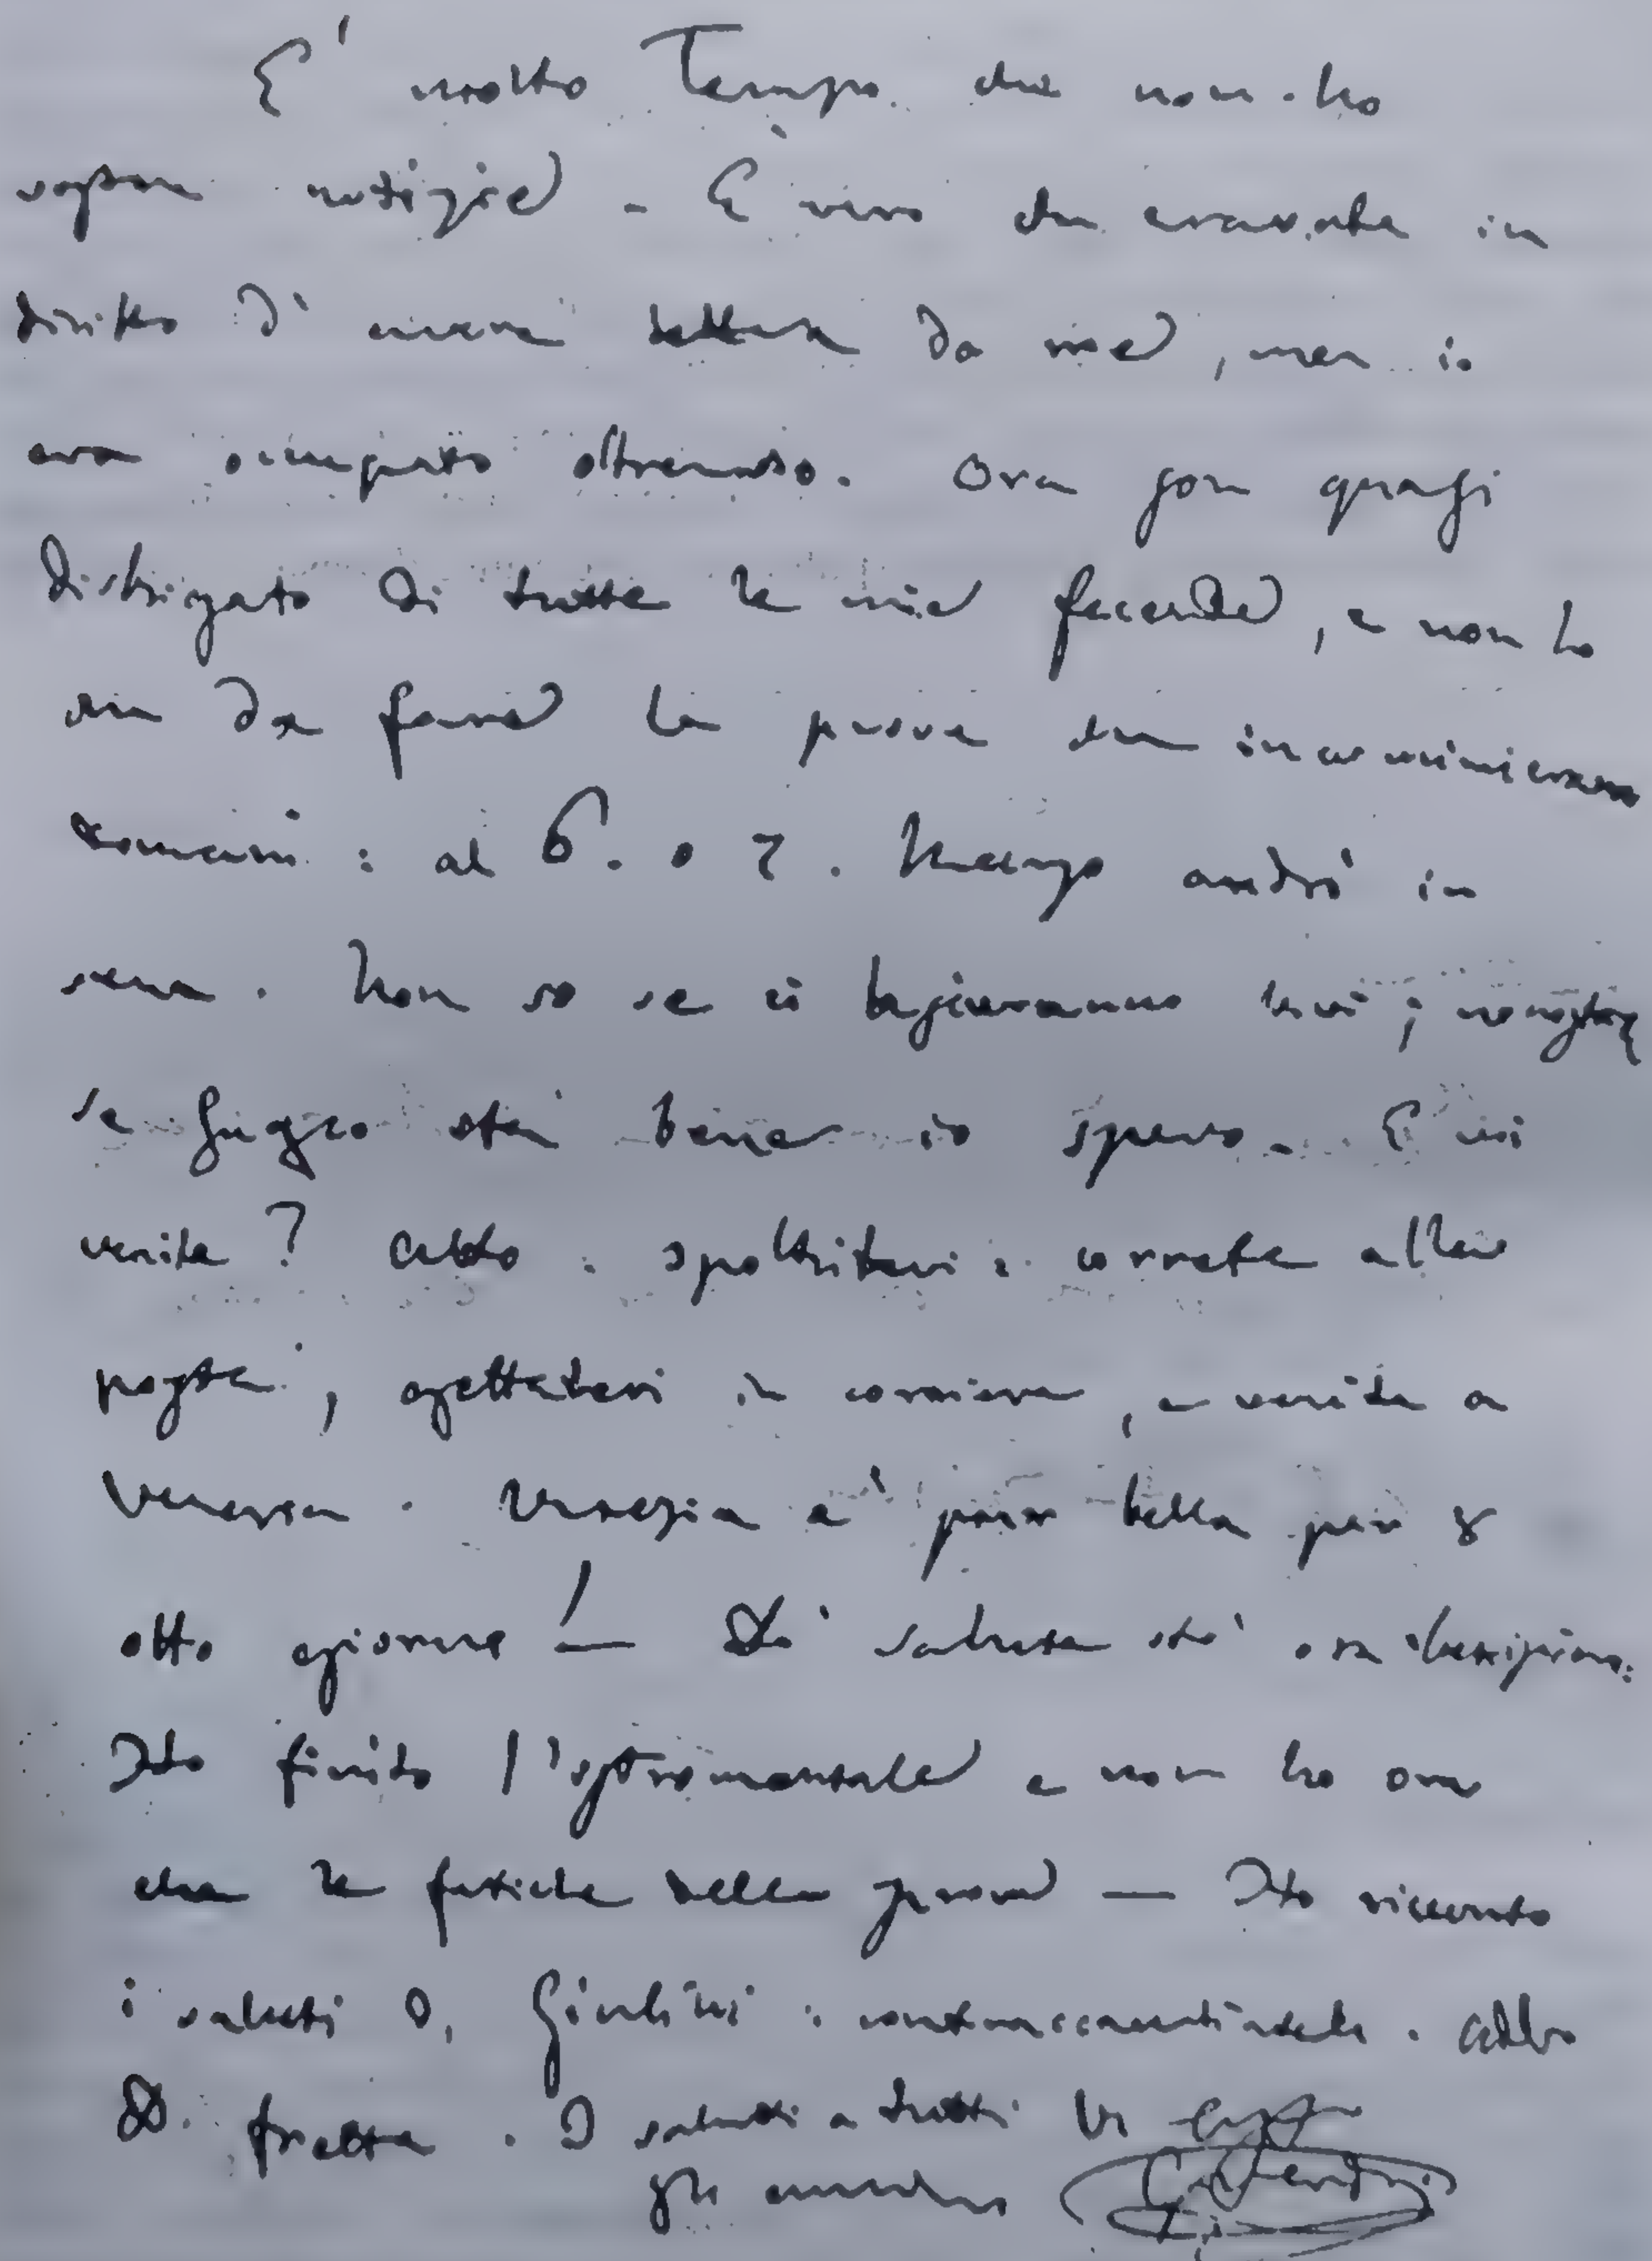 E' molto Tempo che non ho
vostre notizie. È vero che eravate in
diritto d' avere lettera da me, ma io
era occupato oltremodo. Ora son quasi
distrigato di tutte le mie facende, e non ho
che da fare le prove che incominieranno
domani: al 6. o 7. Marzo andrò in
scena. Non so se ci lascieranno vivi;
se Gusgeo stà bene io spero. E voi
venite? Alto: spoltritevi: correte alla
posta, gettatevi in corriera, e venite a
Venezia. Venezia è pur bella per 8
otto giorni! — Di salute stò ora benissimo:
Ho finito l'istromentale e non ho ora
che le fatiche delle prove — Ho ricevuto
i saluti D. Giulini: contraccambiatele. Addio
Di fretta. I saluti a tutti Vi
gli amici G. Verdi